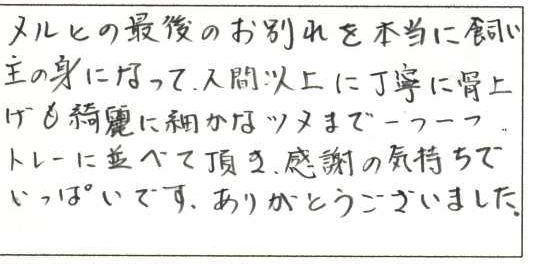 メルとの最後のお別れを本当に飼い
主の身になって、人間以上に丁寧に骨上
げも綺麗に細かなツメまで一つ一つ
トレーに並べて頂き、感謝の気持ちで
いっぱいです、ありがとうございました。